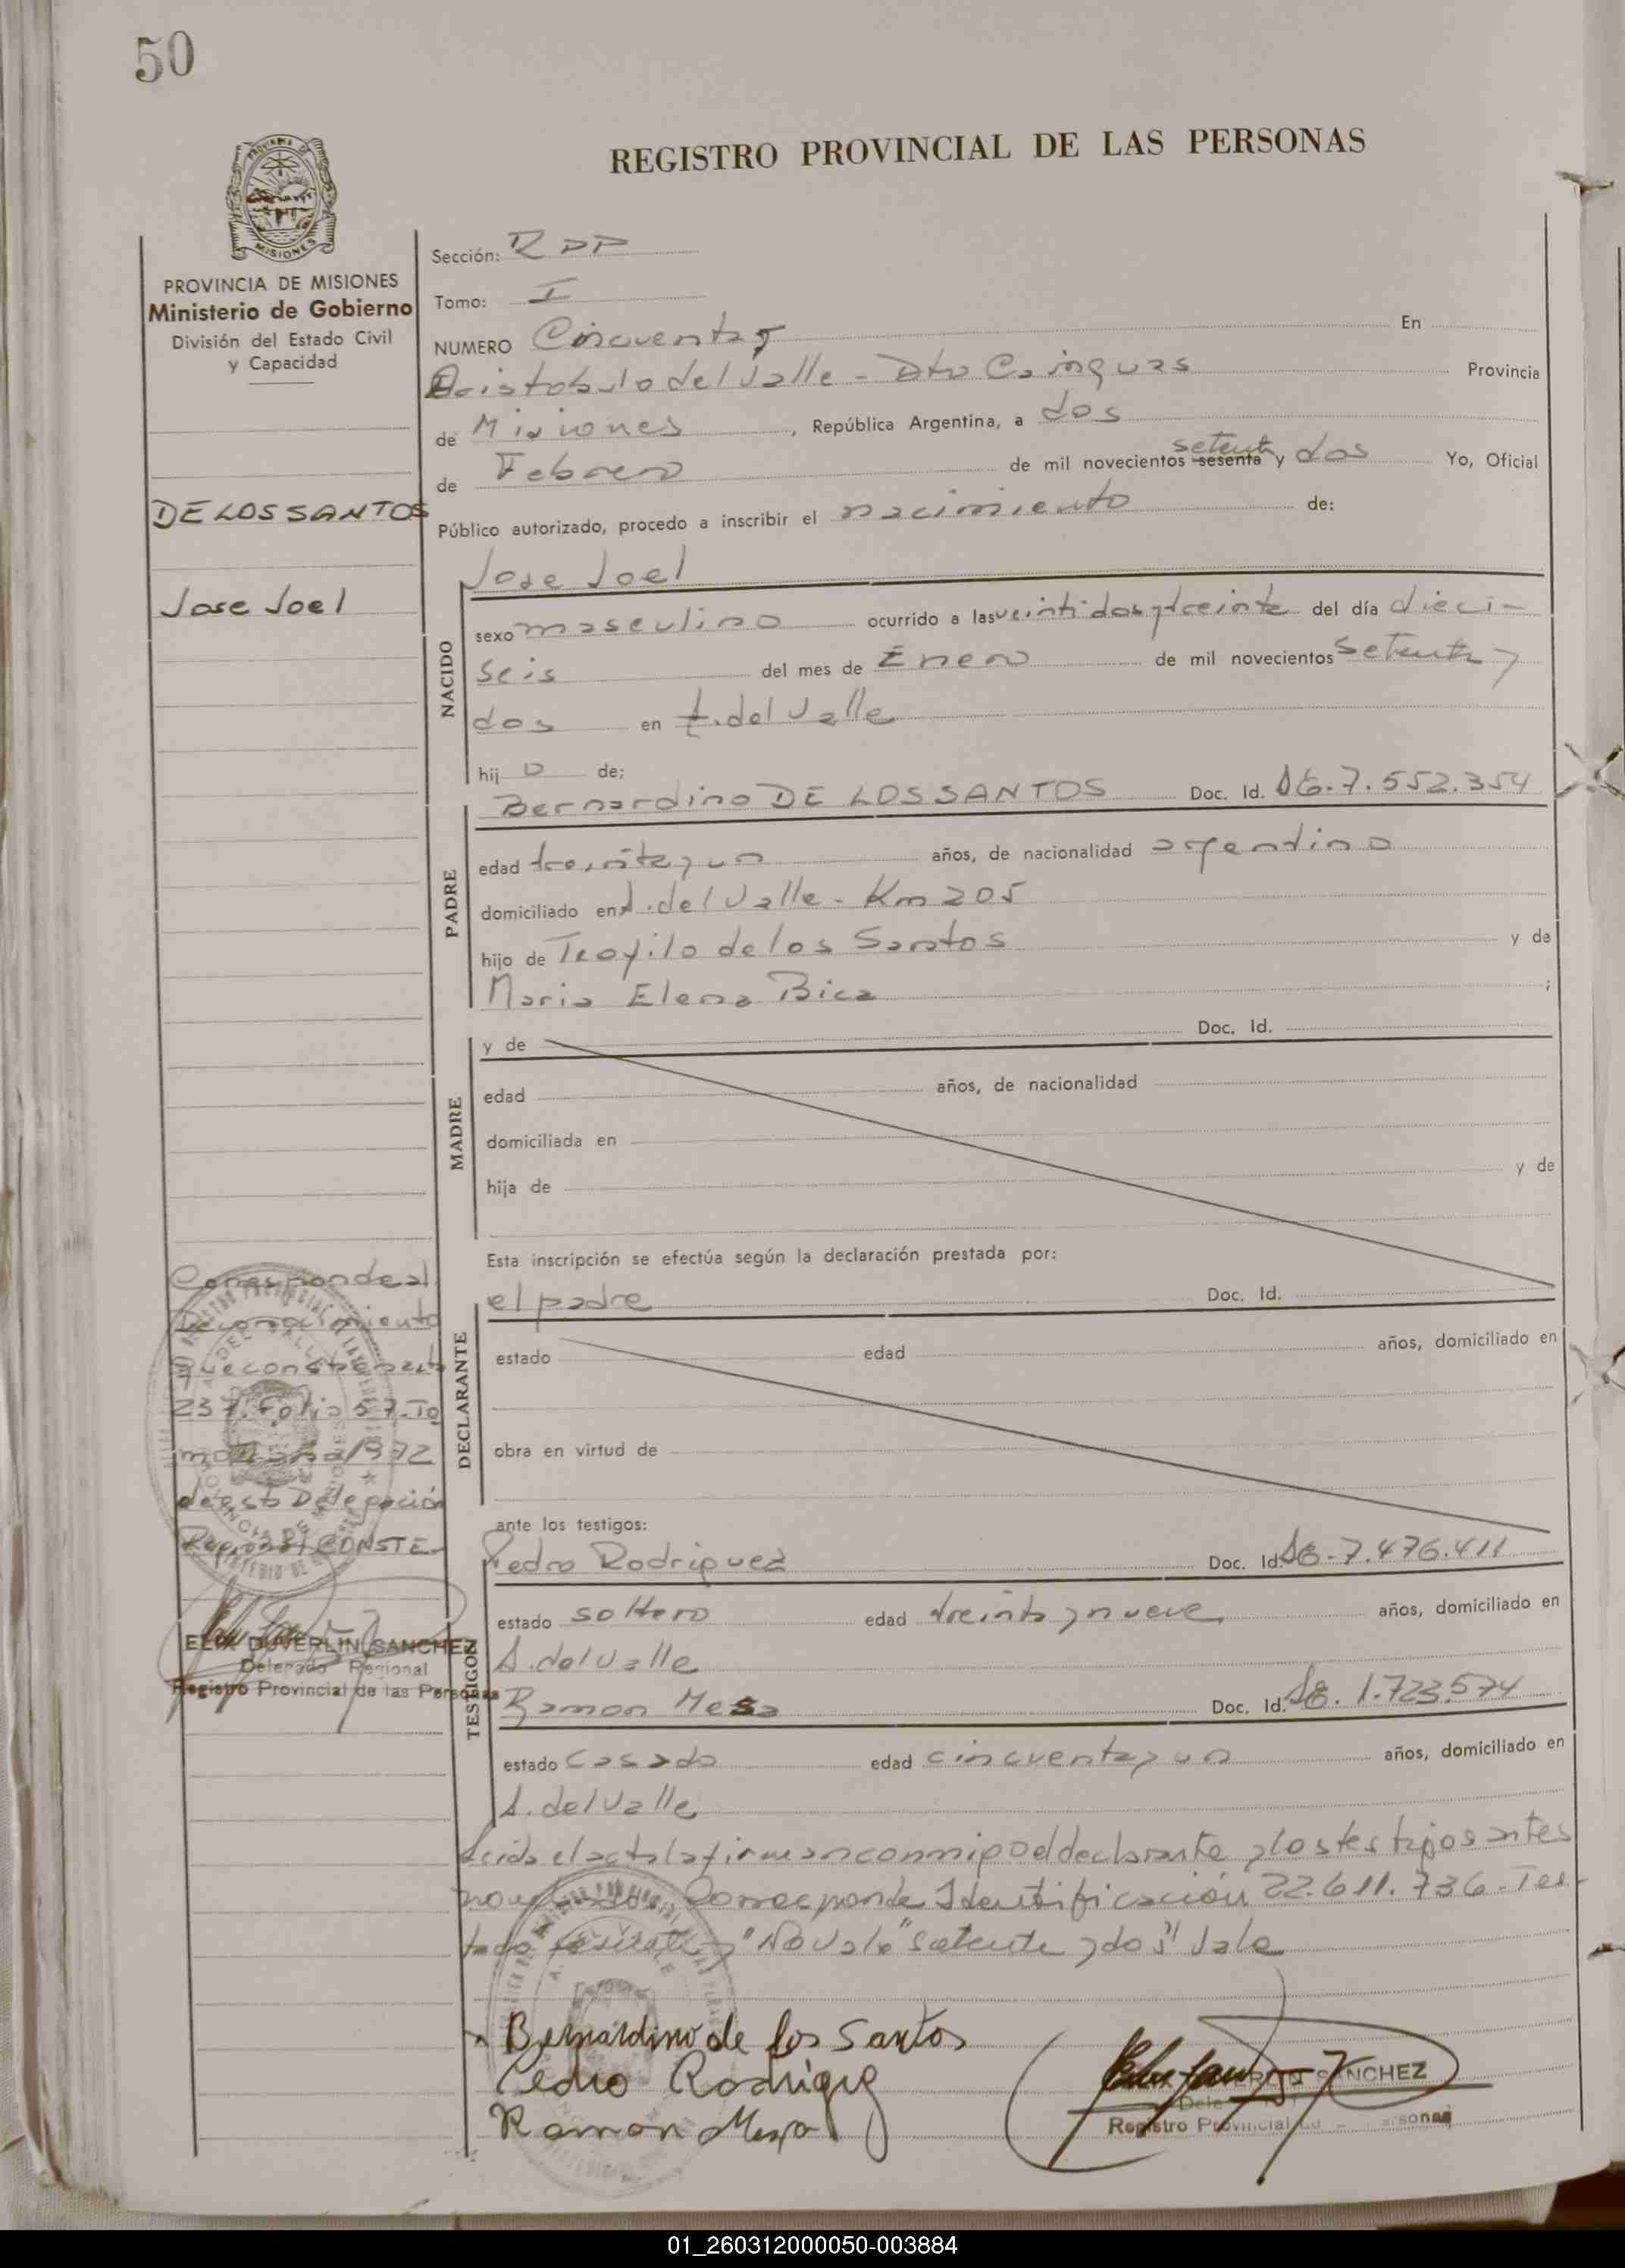 50
REGISTRO PROVINCIAL DE LAS PERSONAS
MISIONES
PROVINCIA DE MISIONES
Ministerio de Gobierno
División del Estado Civil
y Capacidad
DE LOS SANTOS
Jose Joel
Sección:
Tomo: I
NUMERO Cincuenta En
Aristobulo del Valle - Dto Cainguas Provincia
de Misiones, República Argentina, a dos
de Febrero de mil novecientos sesenta setenta y dos Yo, Oficial
Público autorizado, procedo a inscribir el nacimiento de:
Jose Joel
NACIDO
sexo masculino ocurrido a las veintidos y treinta del día dieci-
seis del mes de Enero de mil novecientos setenta y
dos en A. del Valle
hijo de;
PADRE
Bernardino DE LOS SANTOS Doc. Id. 7.552.354
edad treinta y un años, de nacionalidad argentino
domiciliado en A. del Valle - Km 205
hijo de Teofilo de los Santos y de
Maria Elena Bica ;
MADRE
y de Doc. Id.
edad años, de nacionalidad
domiciliada en
hija de y de
Esta inscripción se efectúa según la declaración prestada por:
DECLARANTE
el padre Doc. Id.
estado edad años, domiciliado en
obra en virtud de
ante los testigos:
TESTIGOS
Pedro Rodriguez Doc. Id. 7.476.411
estado soltero edad treinta y nueve años, domiciliado en
A. del Valle
Ramon Mesa Doc. Id. 1.723.574
estado Casado edad cincuenta y un años, domiciliado en
A. del Valle
Leida el acta la firman conmigo el declarante y los testigos antes
nombrados. Corresponde Identificación 22.611.736 - Tes-
tado "No vale" "setenta y dos" Vale
Bernardino de los Santos
Pedro Rodrigue
Ramon Mesa
SANCHEZ
Registro Provincial
Corresponde al
Reconocimiento
que consta en acta
237. Folio 57. To
mo año 1972
de esta Delegación
Regional CONSTE
ELIX DUVERLIN SANCHEZ
Delegado Regional
Registro Provincial de las Personas
01_260312000050-003884